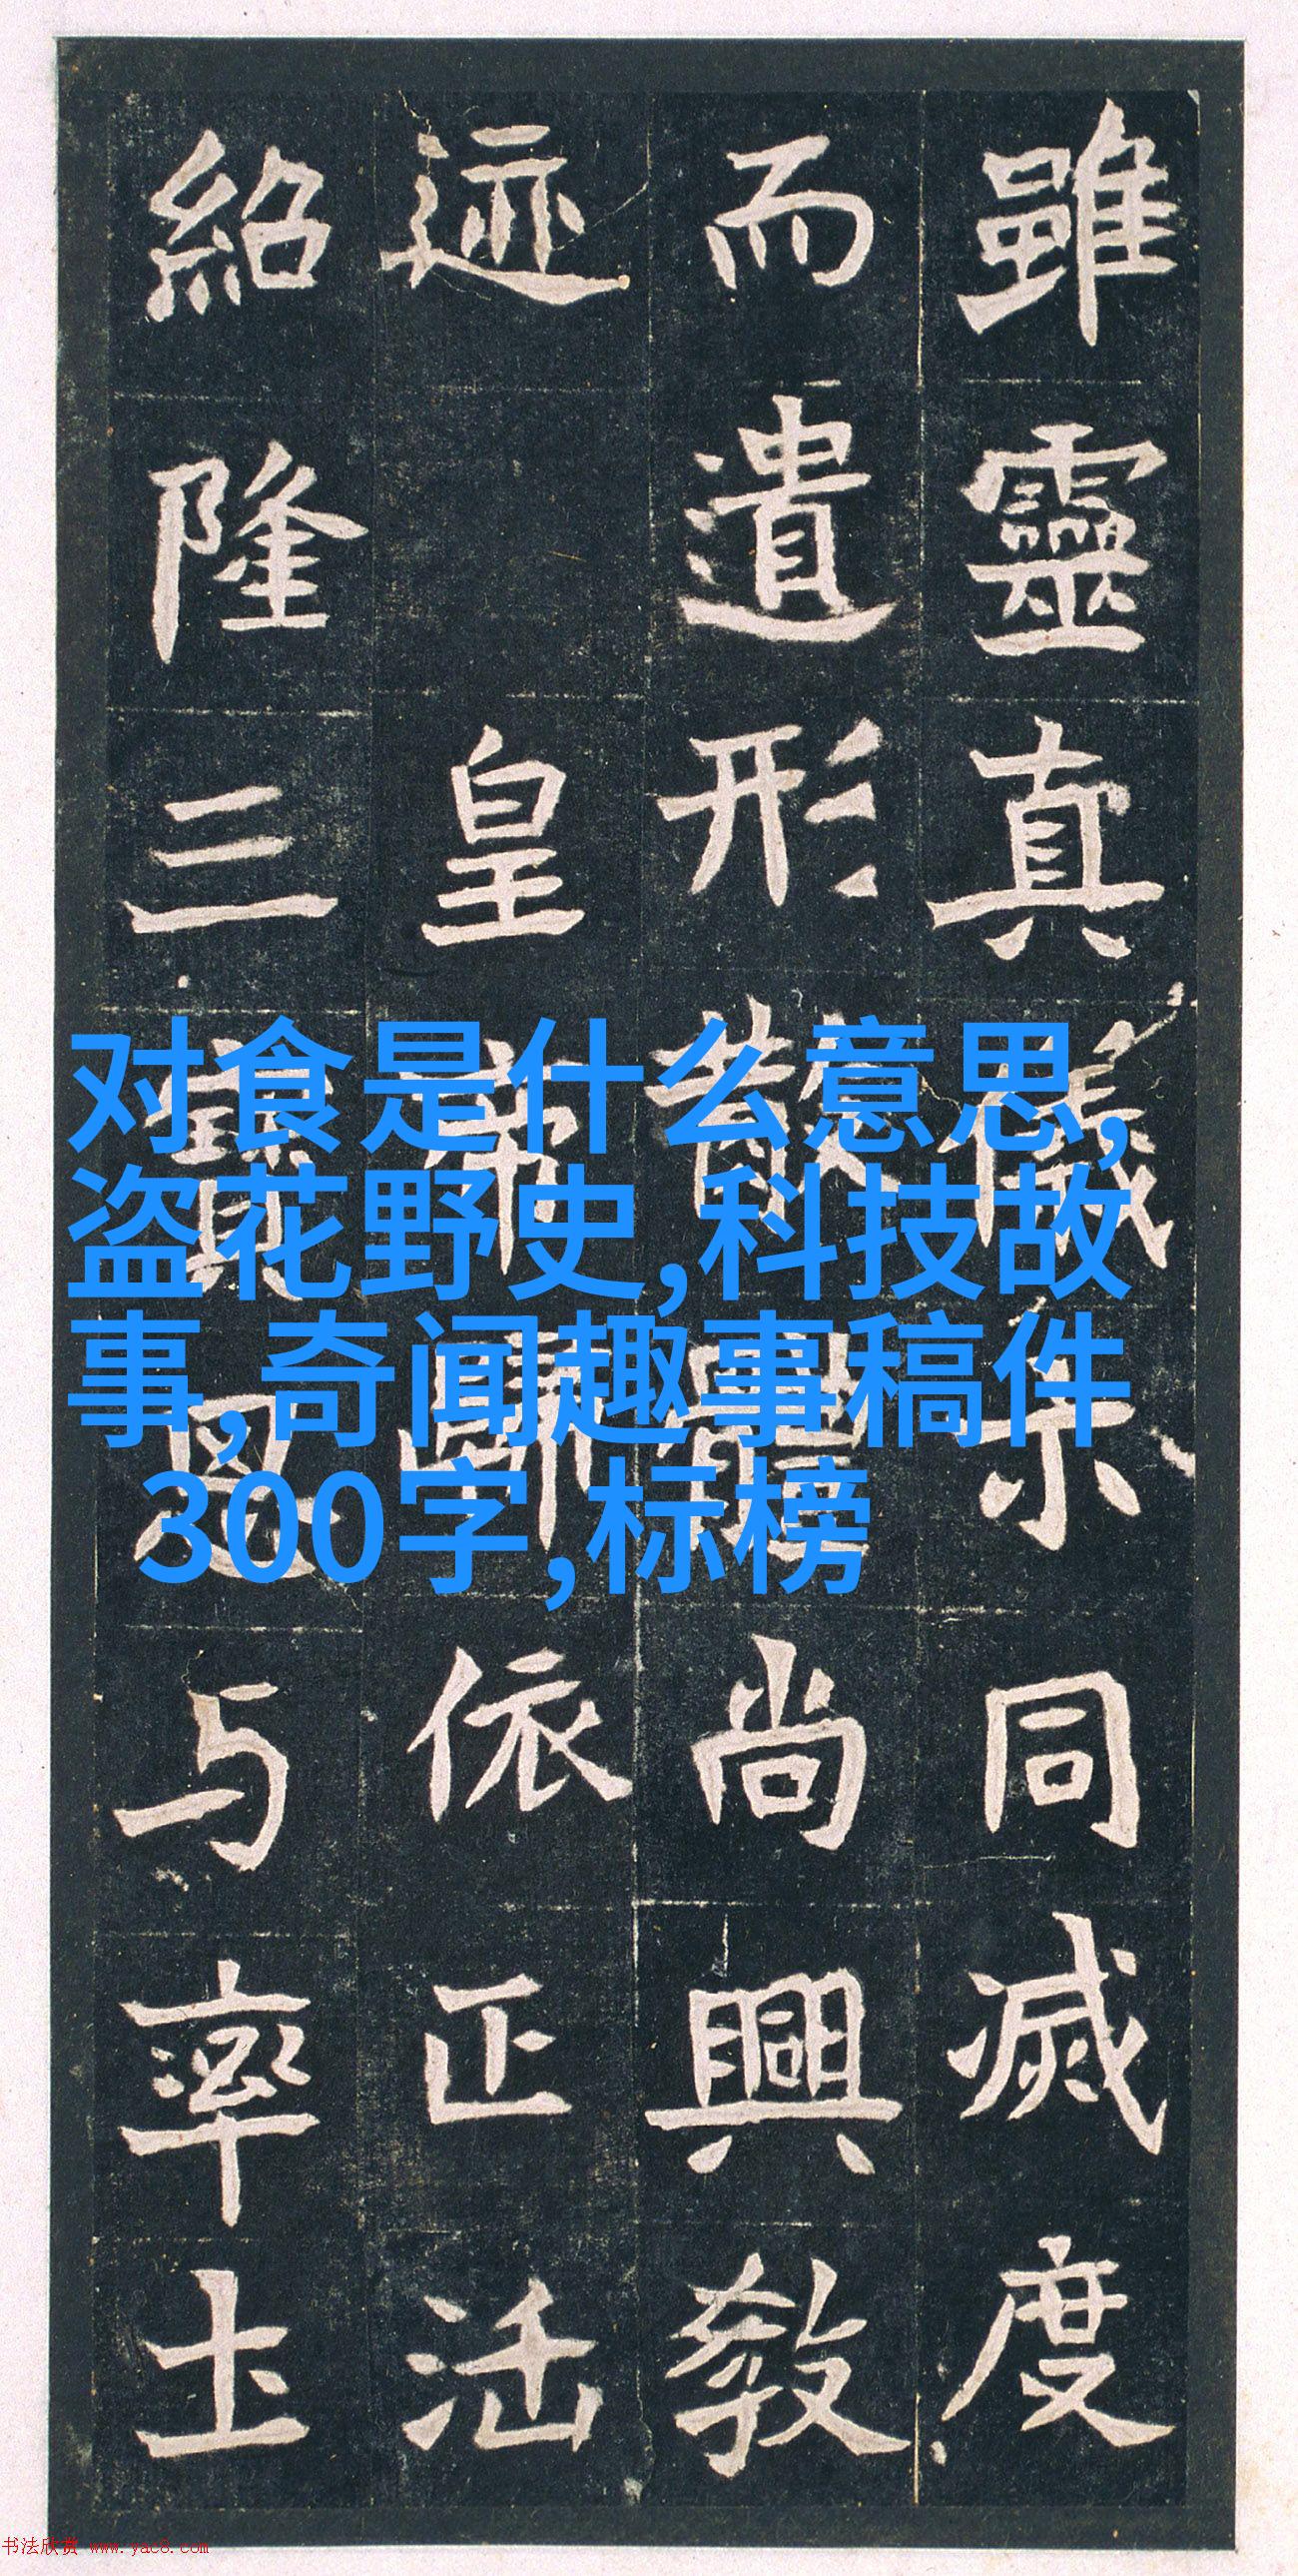 雖靈真儀示同滅度
而遺形散體尚興教
迹 皇帝歸依正法
紹隆三寶思与率土
对食是什么意思,
盗花野史,科技故
事,奇闻趣事稿件
300字,标榜
书法欣赏 www.yac8.com